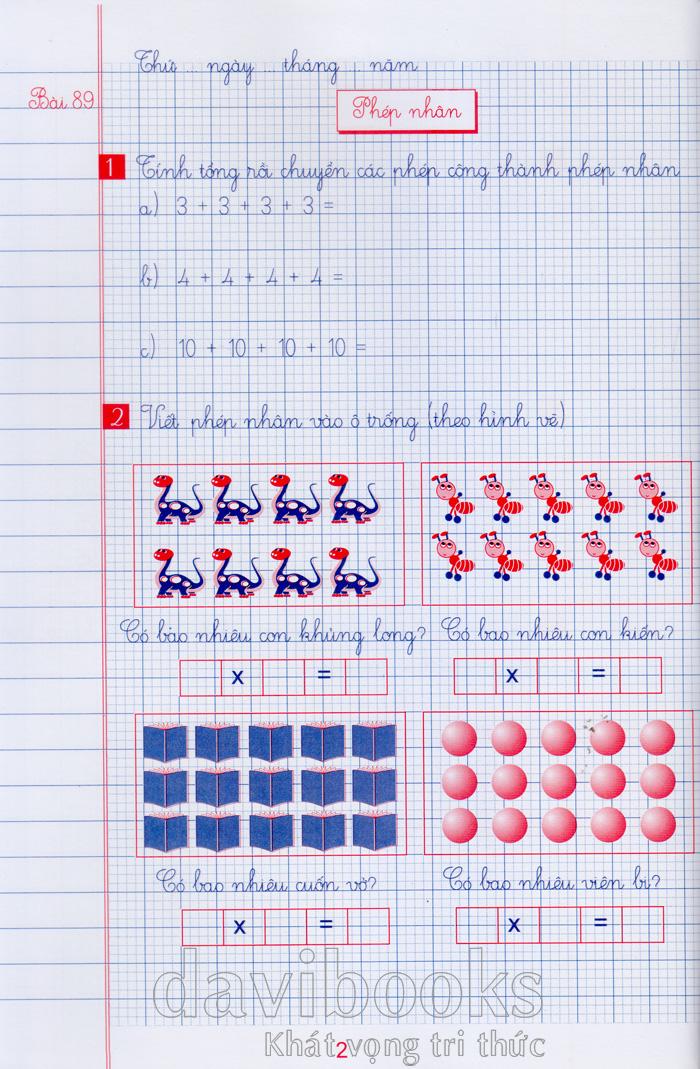 Thứ ... ngày ... tháng ... năm
Bài 89
Phép nhân
1 Tính tổng rồi chuyển các phép cộng thành phép nhân
a) 3 + 3 + 3 + 3 =
b) 4 + 4 + 4 + 4 =
c) 10 + 10 + 10 + 10 =
2 Viết phép nhân vào ô trống (theo hình vẽ)
Có bao nhiêu con khủng long? Có bao nhiêu con kiến?
x = x =
Có bao nhiêu cuốn vở? Có bao nhiêu viên bi?
x = x =
davibooks
Khát vọng tri thức
2